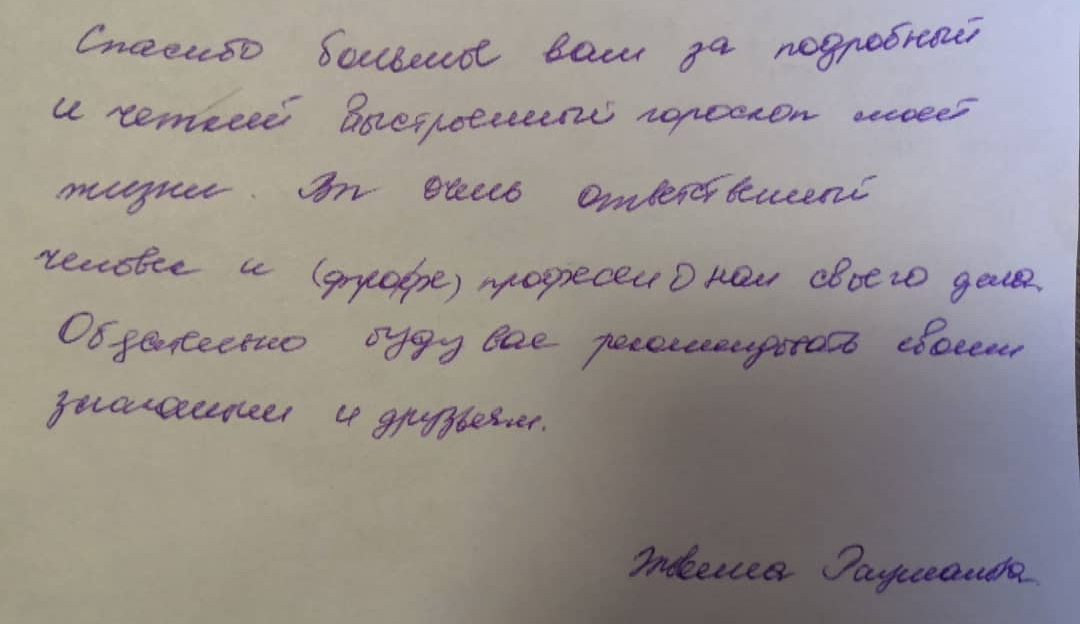 Спасибо большое вам за подробный
и четкий выстроенный гороскоп моей
жизни. Вы очень ответственный
человек и (профе) професси О нал своего дела.
Обязательно буду вас рекомендовать своим
знакомым и друзьям.